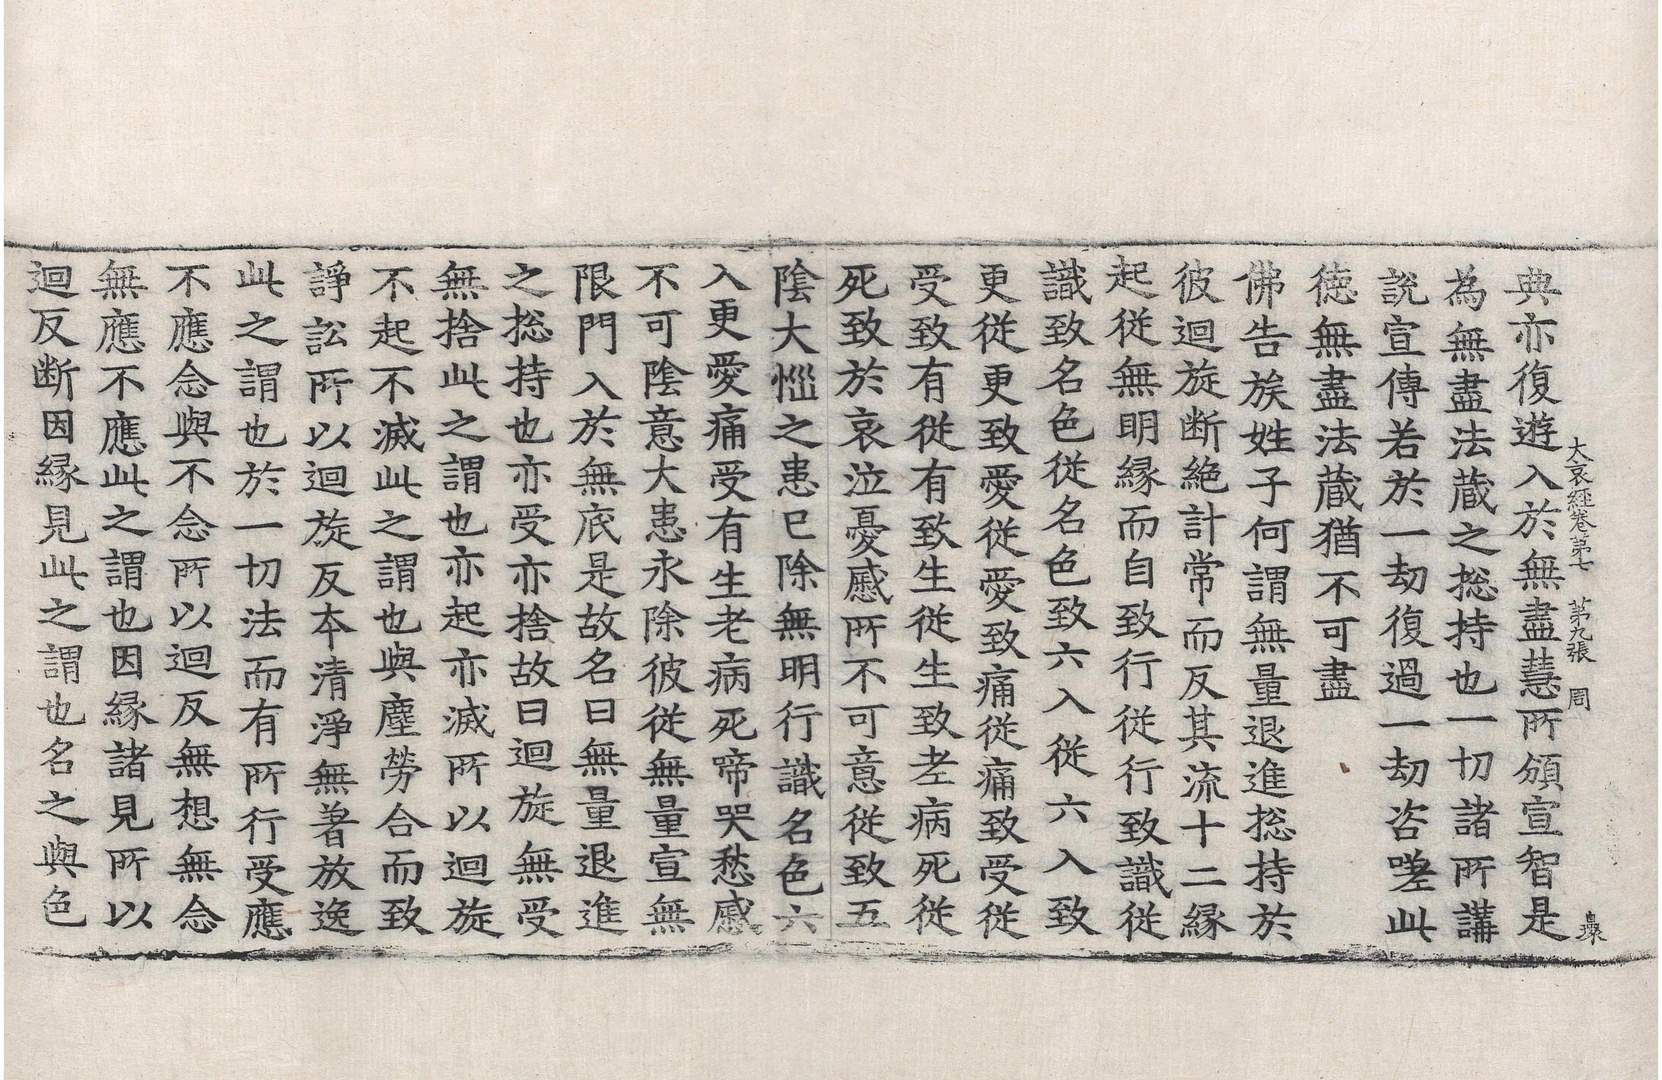 大哀經卷第七 第九張 周
典亦復遊入於無盡慧所頒宣智是
為無盡法蔵之捴持也一切諸所講
說宣傳若於一劫復過一劫咨嗟此
徳無盡法蔵猶不可盡
佛告族姓子何謂無量退進捴持於
彼迴旋断絶計常而反其流十二縁
起從無明縁而自致行從行致識從
識致名色從名色致六入從六入致
更從更致愛從愛致痛從痛致受從
受致有從有致生從生致老病死從
死致於哀泣憂慼所不可意從致五
陰大惱之患已除無明行識名色六
入更愛痛受有生老病死啼哭愁慼
不可陰意大患永除彼從無量宣無
限門入於無底是故名曰無量退進
之捴持也亦受亦捨故曰迴旋無受
無捨此之謂也亦起亦滅所以迴旋
不起不滅此之謂也與塵勞合而致
諍訟所以迴旋反本清淨無著放逸
此之謂也於一切法而有所行受應
不應念與不念所以迴反無想無念
無應不應此之謂也因縁諸見所以
迴反断因縁見此之謂也名之與色